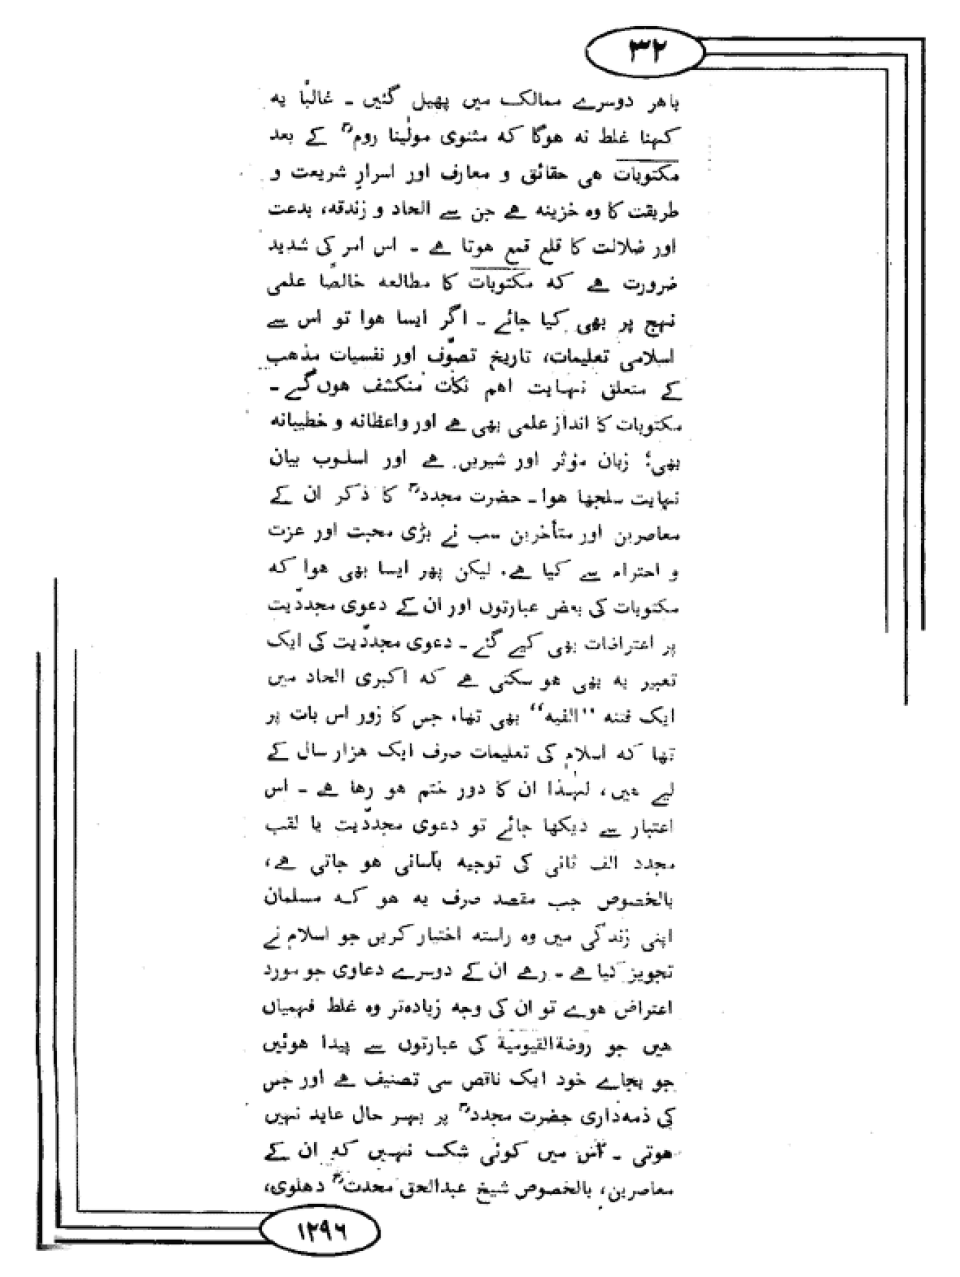 ۳۲
باهر دوسرے ممالک میں پھیل گئیں ۔ غالباً یه
کہنا غلط نه هوگا که مثنوی مولٰینا رومؒ کے بعد
مکتوبات هی حقائق و معارف اور اسرارِ شریعت و
طریقت کا وه خزینه هے جن سے الحاد و زندقه، بدعت
اور ضلالت کا قلع قمع هوتا هے ۔ اس امر کی شدید
ضرورت هے که مکتوبات کا مطالعه خالصًا علمی
نہج پر بھی کیا جائے ۔ اگر ایسا هوا تو اس سے
اسلامی تعلیمات، تاریخ تصوّف اور نفسیات مذهب
کے متعلق نہایت اهم نکات منکشف هوں گے ۔
مکتوبات کا انداز علمی بھی هے اور واعظانه و خطیبانه
بھی؛ زبان مؤثر اور شیریں هے اور اسلوب بیان
نہایت سلجھا هوا ۔ حضرت مجددؒ کا ذکر ان کے
معاصرین اور متأخرین سب نے بڑی محبت اور عزت
و احترام سے کیا هے. لیکن پھر ایسا بھی هوا که
مکتوبات کی بعض عبارتوں اور ان کے دعوی مجددّیت
پر اعتراضات بھی کیے گئے ۔ دعوی مجددّیت کی ایک
تعبیر یه بھی هو سکتی هے که اکبری الحاد میں
ایک فتنه "الفیه" بھی تھا، جس کا زور اس بات پر
تھا که اسلام کی تعلیمات صرف ایک هزار سال کے
لیے هیں، لہٰذا ان کا دور ختم هو رها هے ۔ اس
اعتبار سے دیکھا جائے تو دعوی مجددّیت یا لقب
مجدد الف ثانی کی توجیه بآسانی هو جاتی هے،
بالخصوص جب مقصد صرف یه هو که مسلمان
اپنی زندگی میں وه راسته اختیار کریں جو اسلام نے
تجویز کیا هے ۔ رهے ان کے دوسرے دعاوی جو مورد
اعتراض هوے تو ان کی وجه زیاده‌تر وه غلط فہمیاں
هیں جو روضةالقیومیة کی عبارتوں سے پیدا هوئیں
جو بجاے خود ایک ناقص سی تصنیف هے اور جس
کی ذمه‌داری حضرت مجددؒ پر بہر حال عاید نہیں
هوتی ۔ اس میں کوئی شک نہیں که ان کے
معاصرین، بالخصوص شیخ عبدالحق محدثؒ دهلوی،
۱۲۹۶